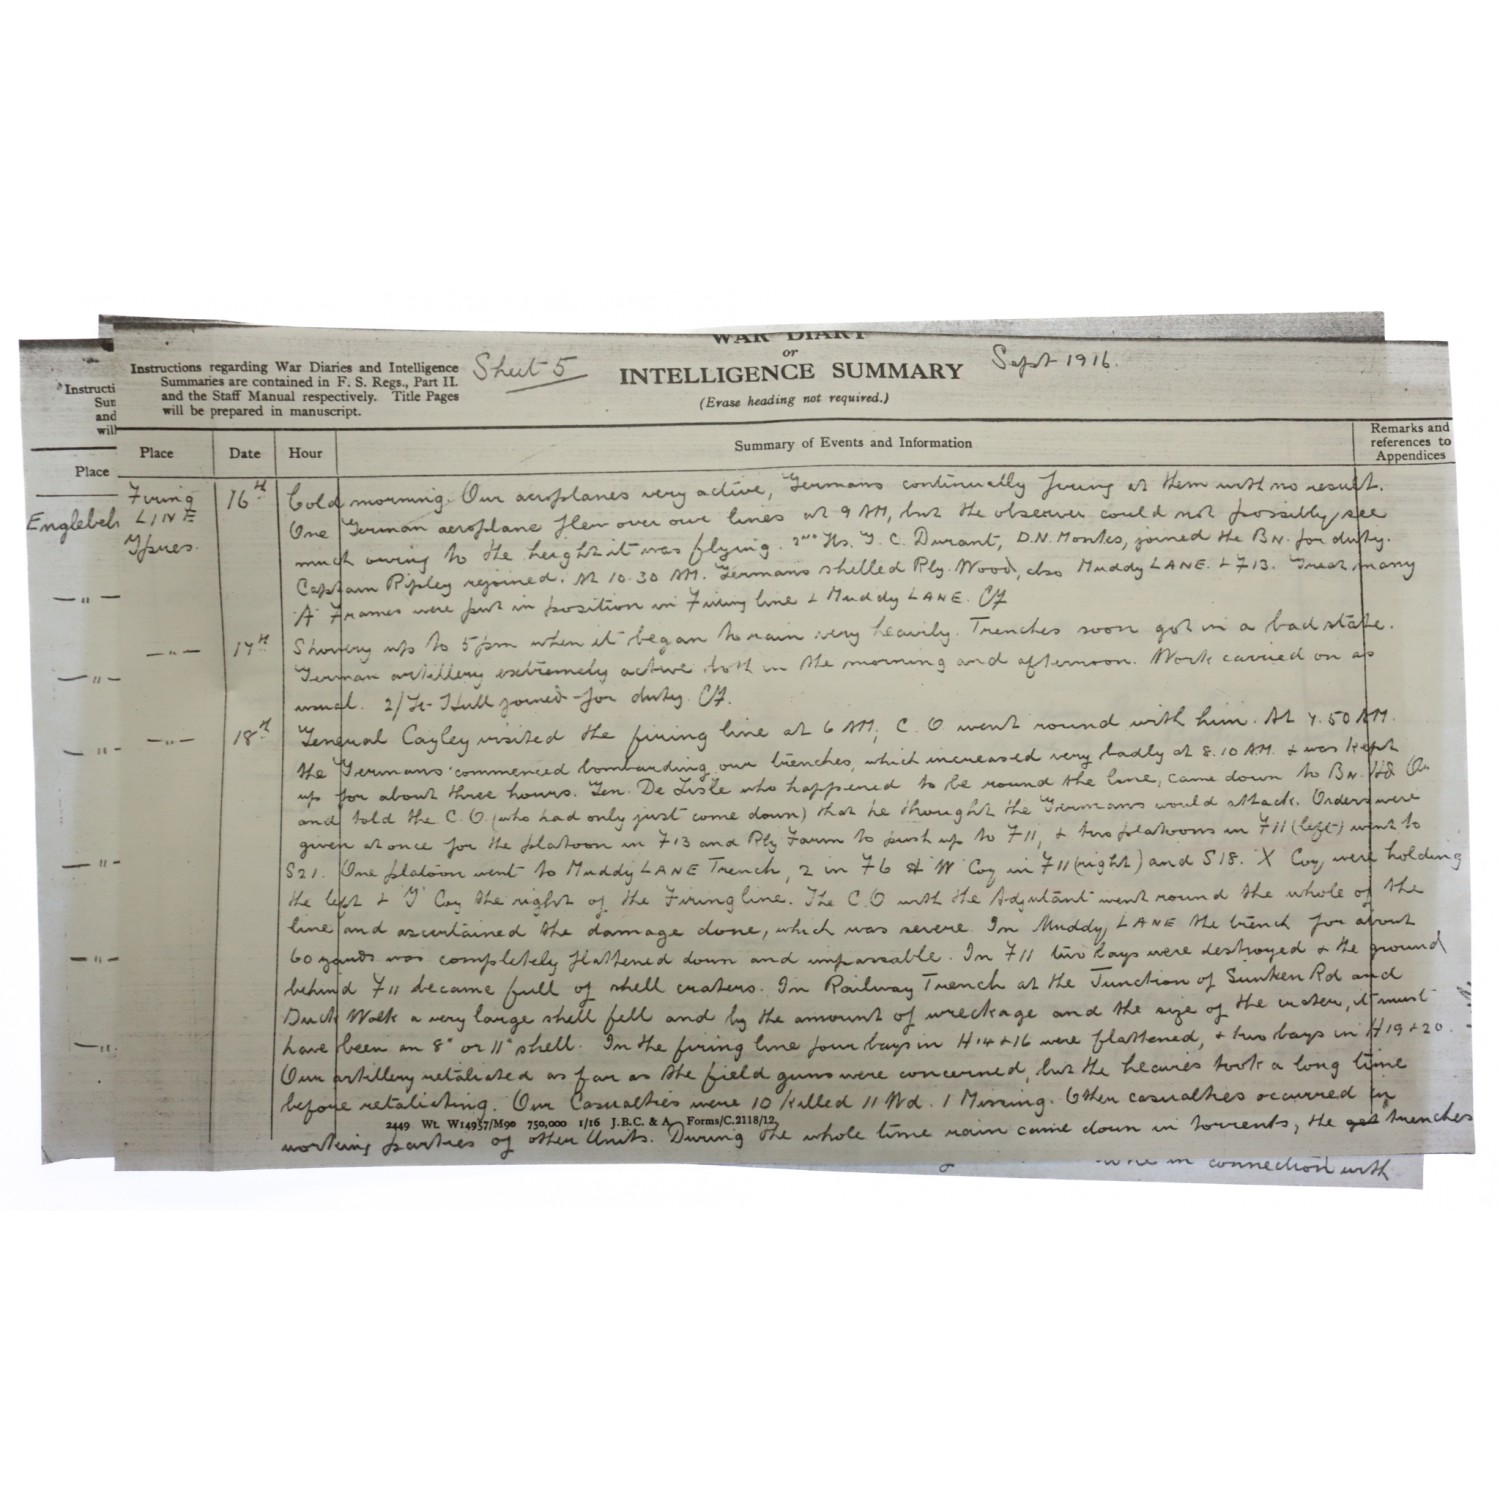 WAR DIARY
or
INTELLIGENCE SUMMARY
(Erase heading not required.)
Sheet 5
Sept 1916.
Instructions regarding War Diaries and Intelligence
Summaries are contained in F. S. Regs., Part II.
and the Staff Manual respectively. Title Pages
will be prepared in manuscript.
Instructi
Sum
and
will
Place
Englebel
Place Date Hour Summary of Events and Information Remarks and
references to
Appendices
Firing
LINE
Ypres.
16th Cold morning. Our aeroplanes very active, Germans continually firing at them with no result.
One German aeroplane flew over our lines at 9 AM, but the observer could not possibly see
much owing to the height it was flying. 2nd Lts. T. C. Durant, D.N. Monks, joined the BN. for duty.
Captain Ripley rejoined. At 10.30 AM. Germans shelled Rly. Wood, also Muddy LANE. & F13. Great many
'A' Frames were put in position in Firing line & Muddy LANE.
17th Showery up to 5 pm when it began to rain very heavily. Trenches soon got in a bad state.
German artillery extremely active both in the morning and afternoon. Work carried on as
usual. 2/Lt Hull joined for duty.
18th General Cayley visited the firing line at 6 AM, C.O went round with him. At 7.50 AM.
the Germans commenced bombarding our trenches, which increased very badly at 8.10 AM. & was kept
up for about three hours. Gen. De Lisle who happened to be round the line, came down to BN. Hd Qr
and told the C.O. (who had only just come down) that he thought the Germans would attack. Orders were
given at once for the platoon in F13 and Rly Farm to push up to F11, & two platoons in F11 (left) went to
S21. One platoon went to Muddy LANE Trench, 2 in F6 & 'W' Coy in F11 (right) and S18. 'X' Coy were holding
the left & 'Y' Coy the right of the Firing line. The C.O with the Adjutant went round the whole of the
line and ascertained the damage done, which was severe. In Muddy LANE the trench for about
60 yards was completely flattened down and impassable. In F11 two bays were destroyed & the ground
behind F11 became full of shell craters. In Railway Trench at the Junction of Sunken Rd and
Duck Walk a very large shell fell and by the amount of wreckage and the size of the crater, it must
have been an 8" or 11" shell. In the firing line four bays in H14 & 16 were flattened, & two bays in H19 & 20.
Our artillery retaliated as far as the field guns were concerned, but the heavies took a long time
before retaliating. Our Casualties were 10 Killed 11 Wd. 1 Missing. Other casualties occurred in
2449 Wt. W14957/M90 750,000 1/16 J.B.C. & A. Forms/C.2118/12.
working parties of other Units. During the whole time rain came down in torrents, the got trenches
in connection with